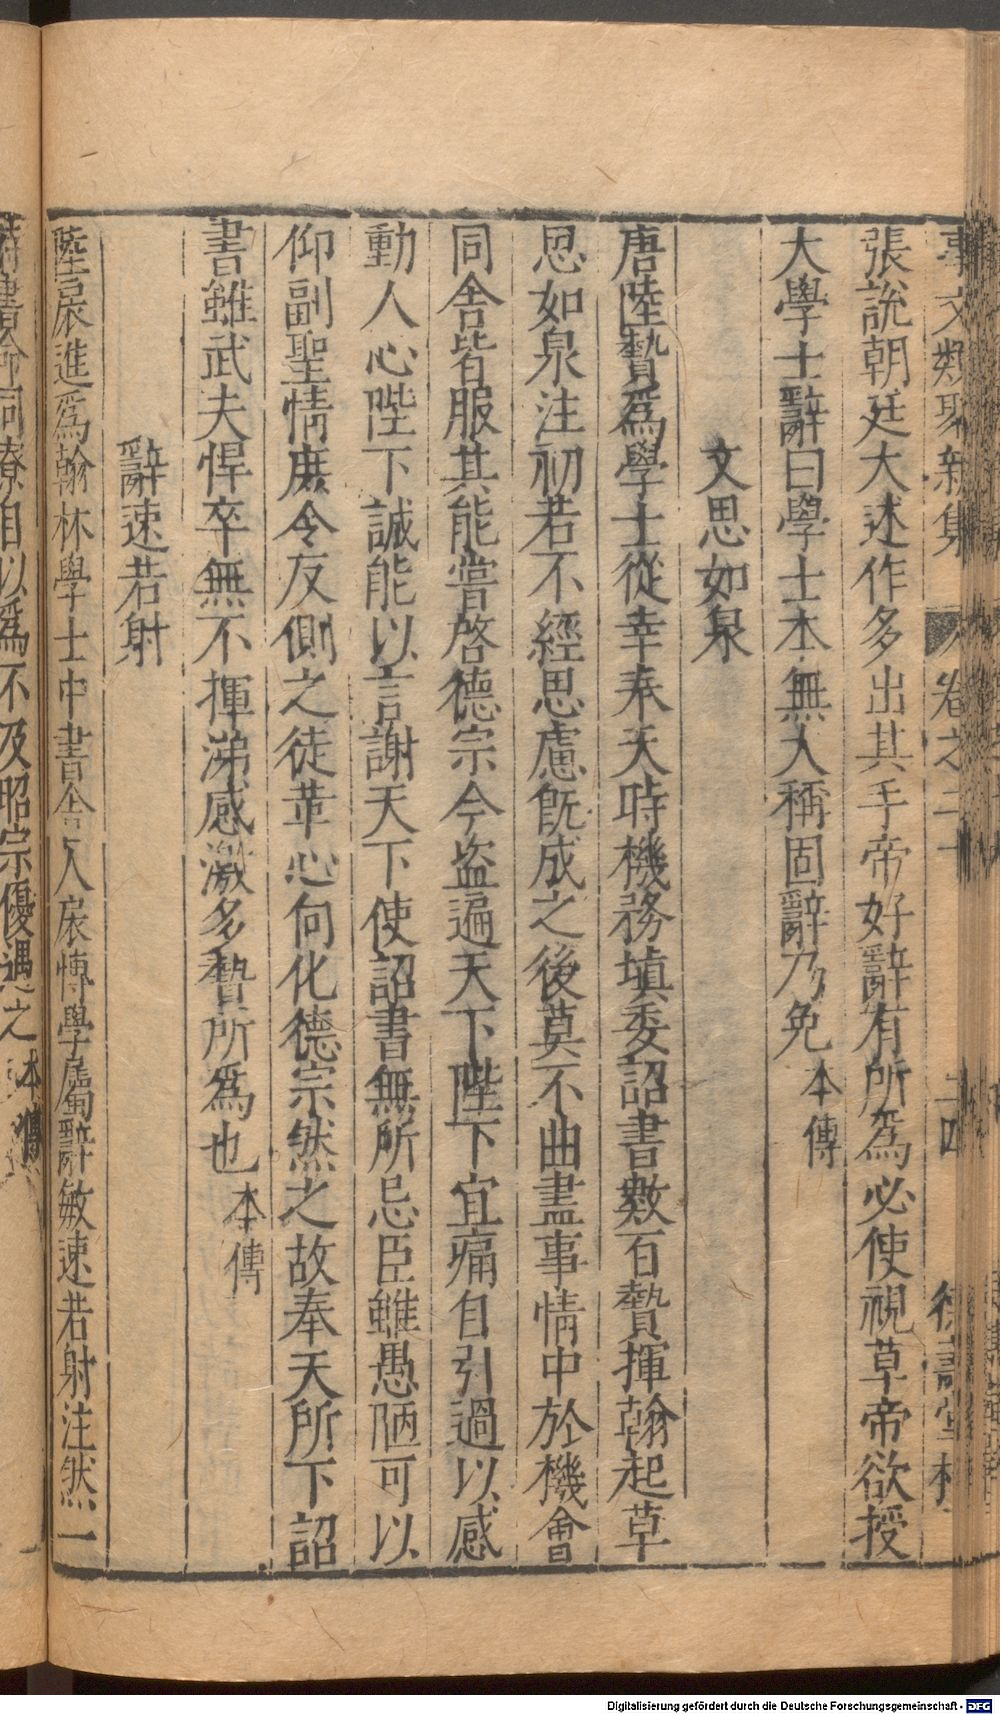 事文類聚新集 卷之二十 二四 德壽堂梓
張說朝廷大述作多出其手帝好辭有所爲必使視草帝欲授
大學士辭曰學士本無大稱固辭乃免 本傳
文思如泉
唐陸贄爲學士從幸奉天時機務塡委詔書數百贄揮翰起草
思如泉注初若不經思慮旣成之後莫不曲盡事情中於機會
同舍皆服其能嘗啓德宗今盗遍天下陛下宜痛自引過以感
動人心陛下誠能以言謝天下使詔書無所忌臣雖愚陋可以
仰副聖情庶令反側之徒革心向化德宗然之故奉天所下詔
書雖武夫悍卒無不揮涕感激多贄所爲也 本傳
辭速若射
陸扆進爲翰林學士中書舍人扆博學屬辭敏速若射注然一
時書命同僚自以爲不及昭宗優遇之 本傳
Digitalisierung gefördert durch die Deutsche Forschungsgemeinschaft - DFG